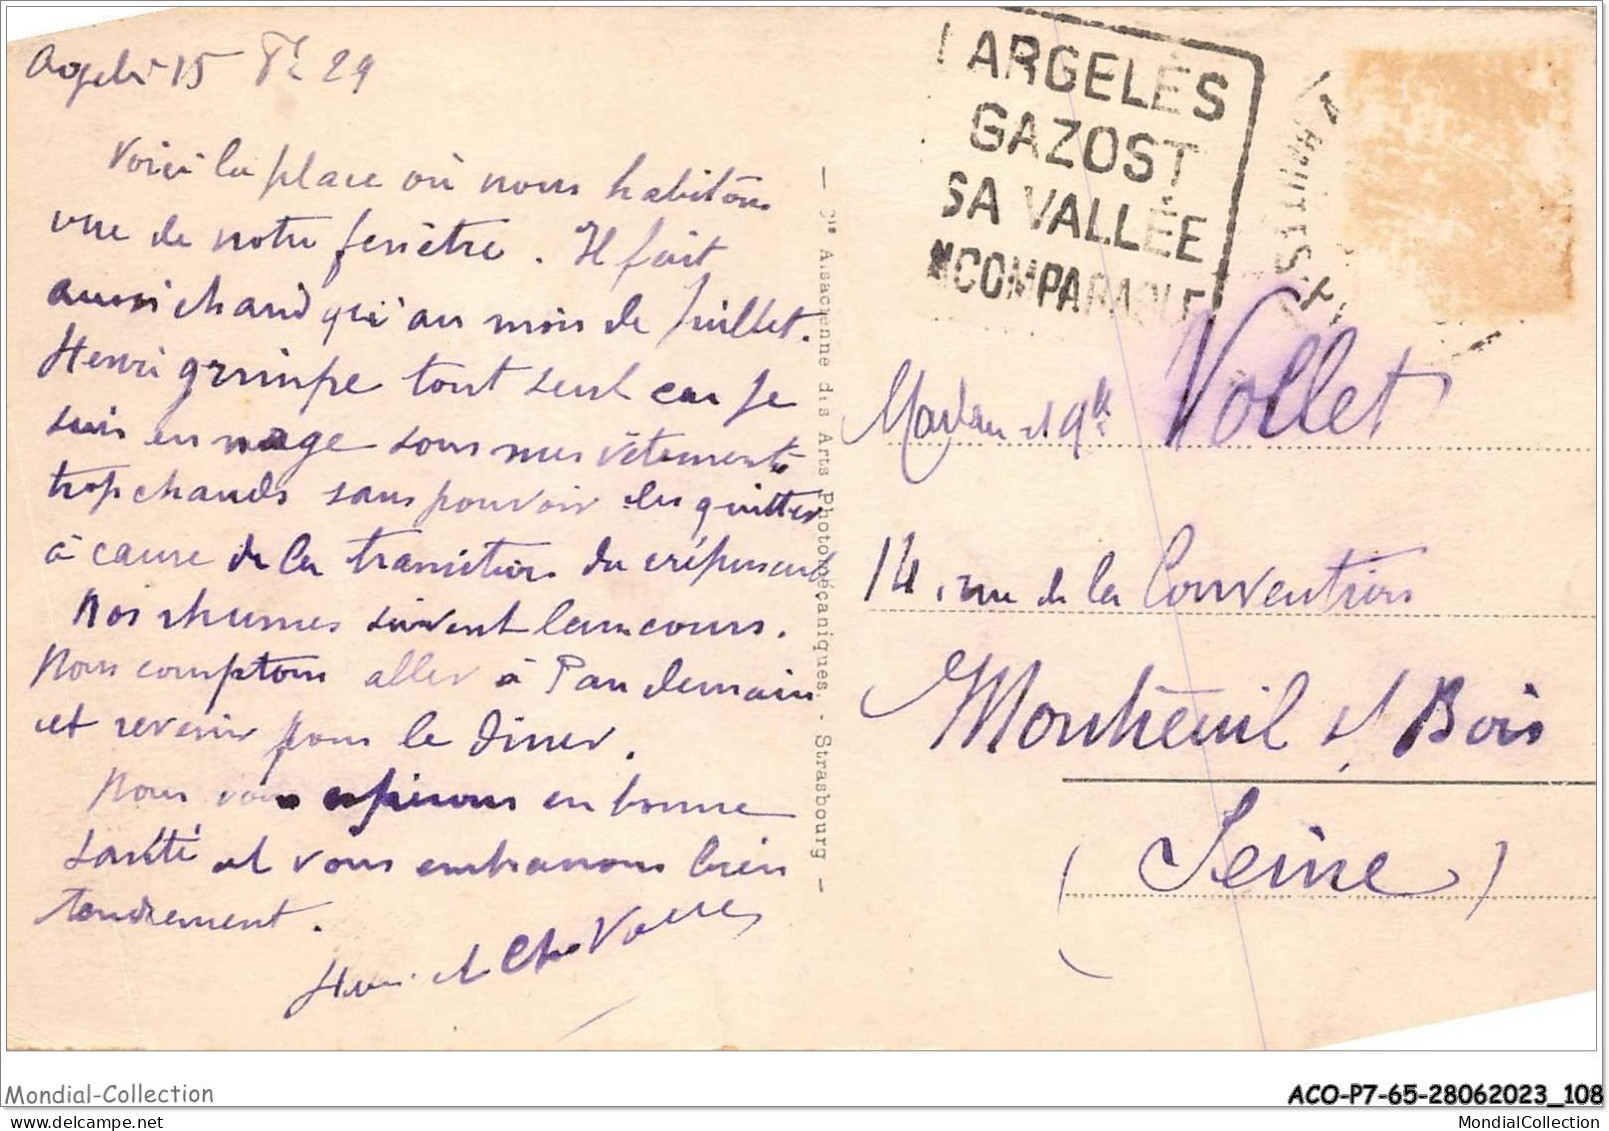 15 29
Voici la place où nous habitons
vue de notre fenêtre. Il fait
aussi chaud qu'au mois de Juillet.
Henri grimpe tout seul car je
suis en nage sous mes vêtements
trop chauds sans pouvoir les quitter
à cause de la transition du crépuscule
Nos rhumes suivent leur cours.
Nous comptons aller à Pau demain
et revenir pour le diner.
Nous vous espérons en bonne
santé et vous embrassons bien
tendrement.
Henri et
Cie Alsacienne des Arts Photomécaniques. - Strasbourg
ARGELÈS
GAZOST
SA VALLÉE
INCOMPARABLE
Vollet
14, rue de la Convention
Montreuil s/ Bois
(Seine)
Mondial-Collection
ACO-P7-65-28062023_108
MondialCollection